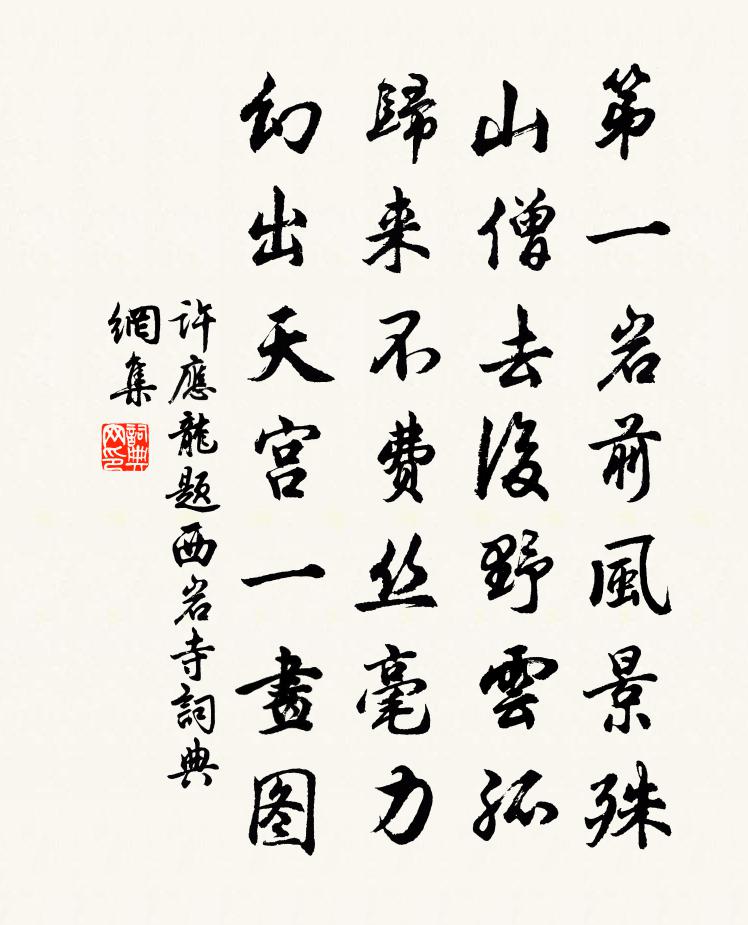 第一岩前風景殊
山僧去後野雲孤
歸来不费丝毫力
幻出天宫一畫图
許應龍題西岩寺詞典
網集
詞典网印